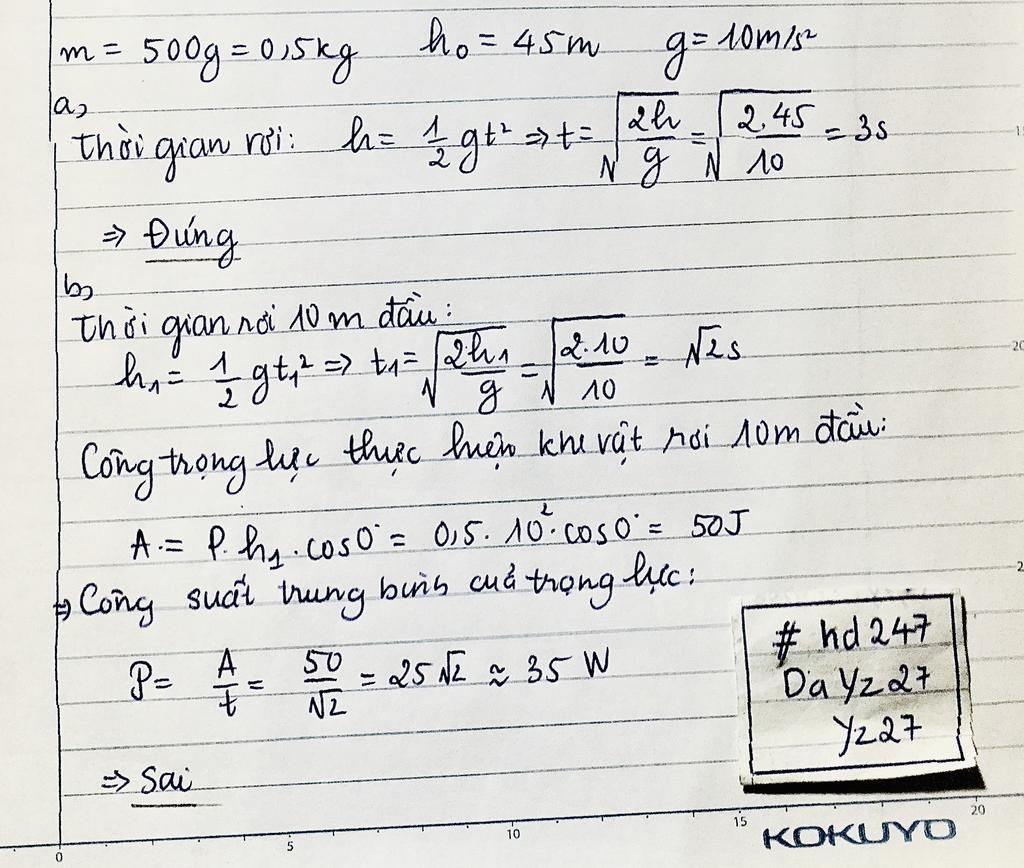 m = 500g = 0,5kg h₀ = 45m g = 10m/s²
a,
Thời gian rơi: h = 1/2 gt² => t = √(2h/g) = √(2.45/10) = 3s
=> Đúng
b,
Thời gian rơi 10m đầu:
h₁ = 1/2 gt₁² => t₁ = √(2h₁/g) = √(2.10/10) = √2s
Công trọng lực thực hiện khi vật rơi 10m đầu:
A = P.h₁.cos0° = 0,5.10².cos0° = 50J
=> Công suất trung bình của trọng lực:
P = A/t = 50/√2 = 25√2 ≈ 35 W
=> Sai
# hd247
Da Yz27
Yz27
0 5 10 15 20
KOKUYO